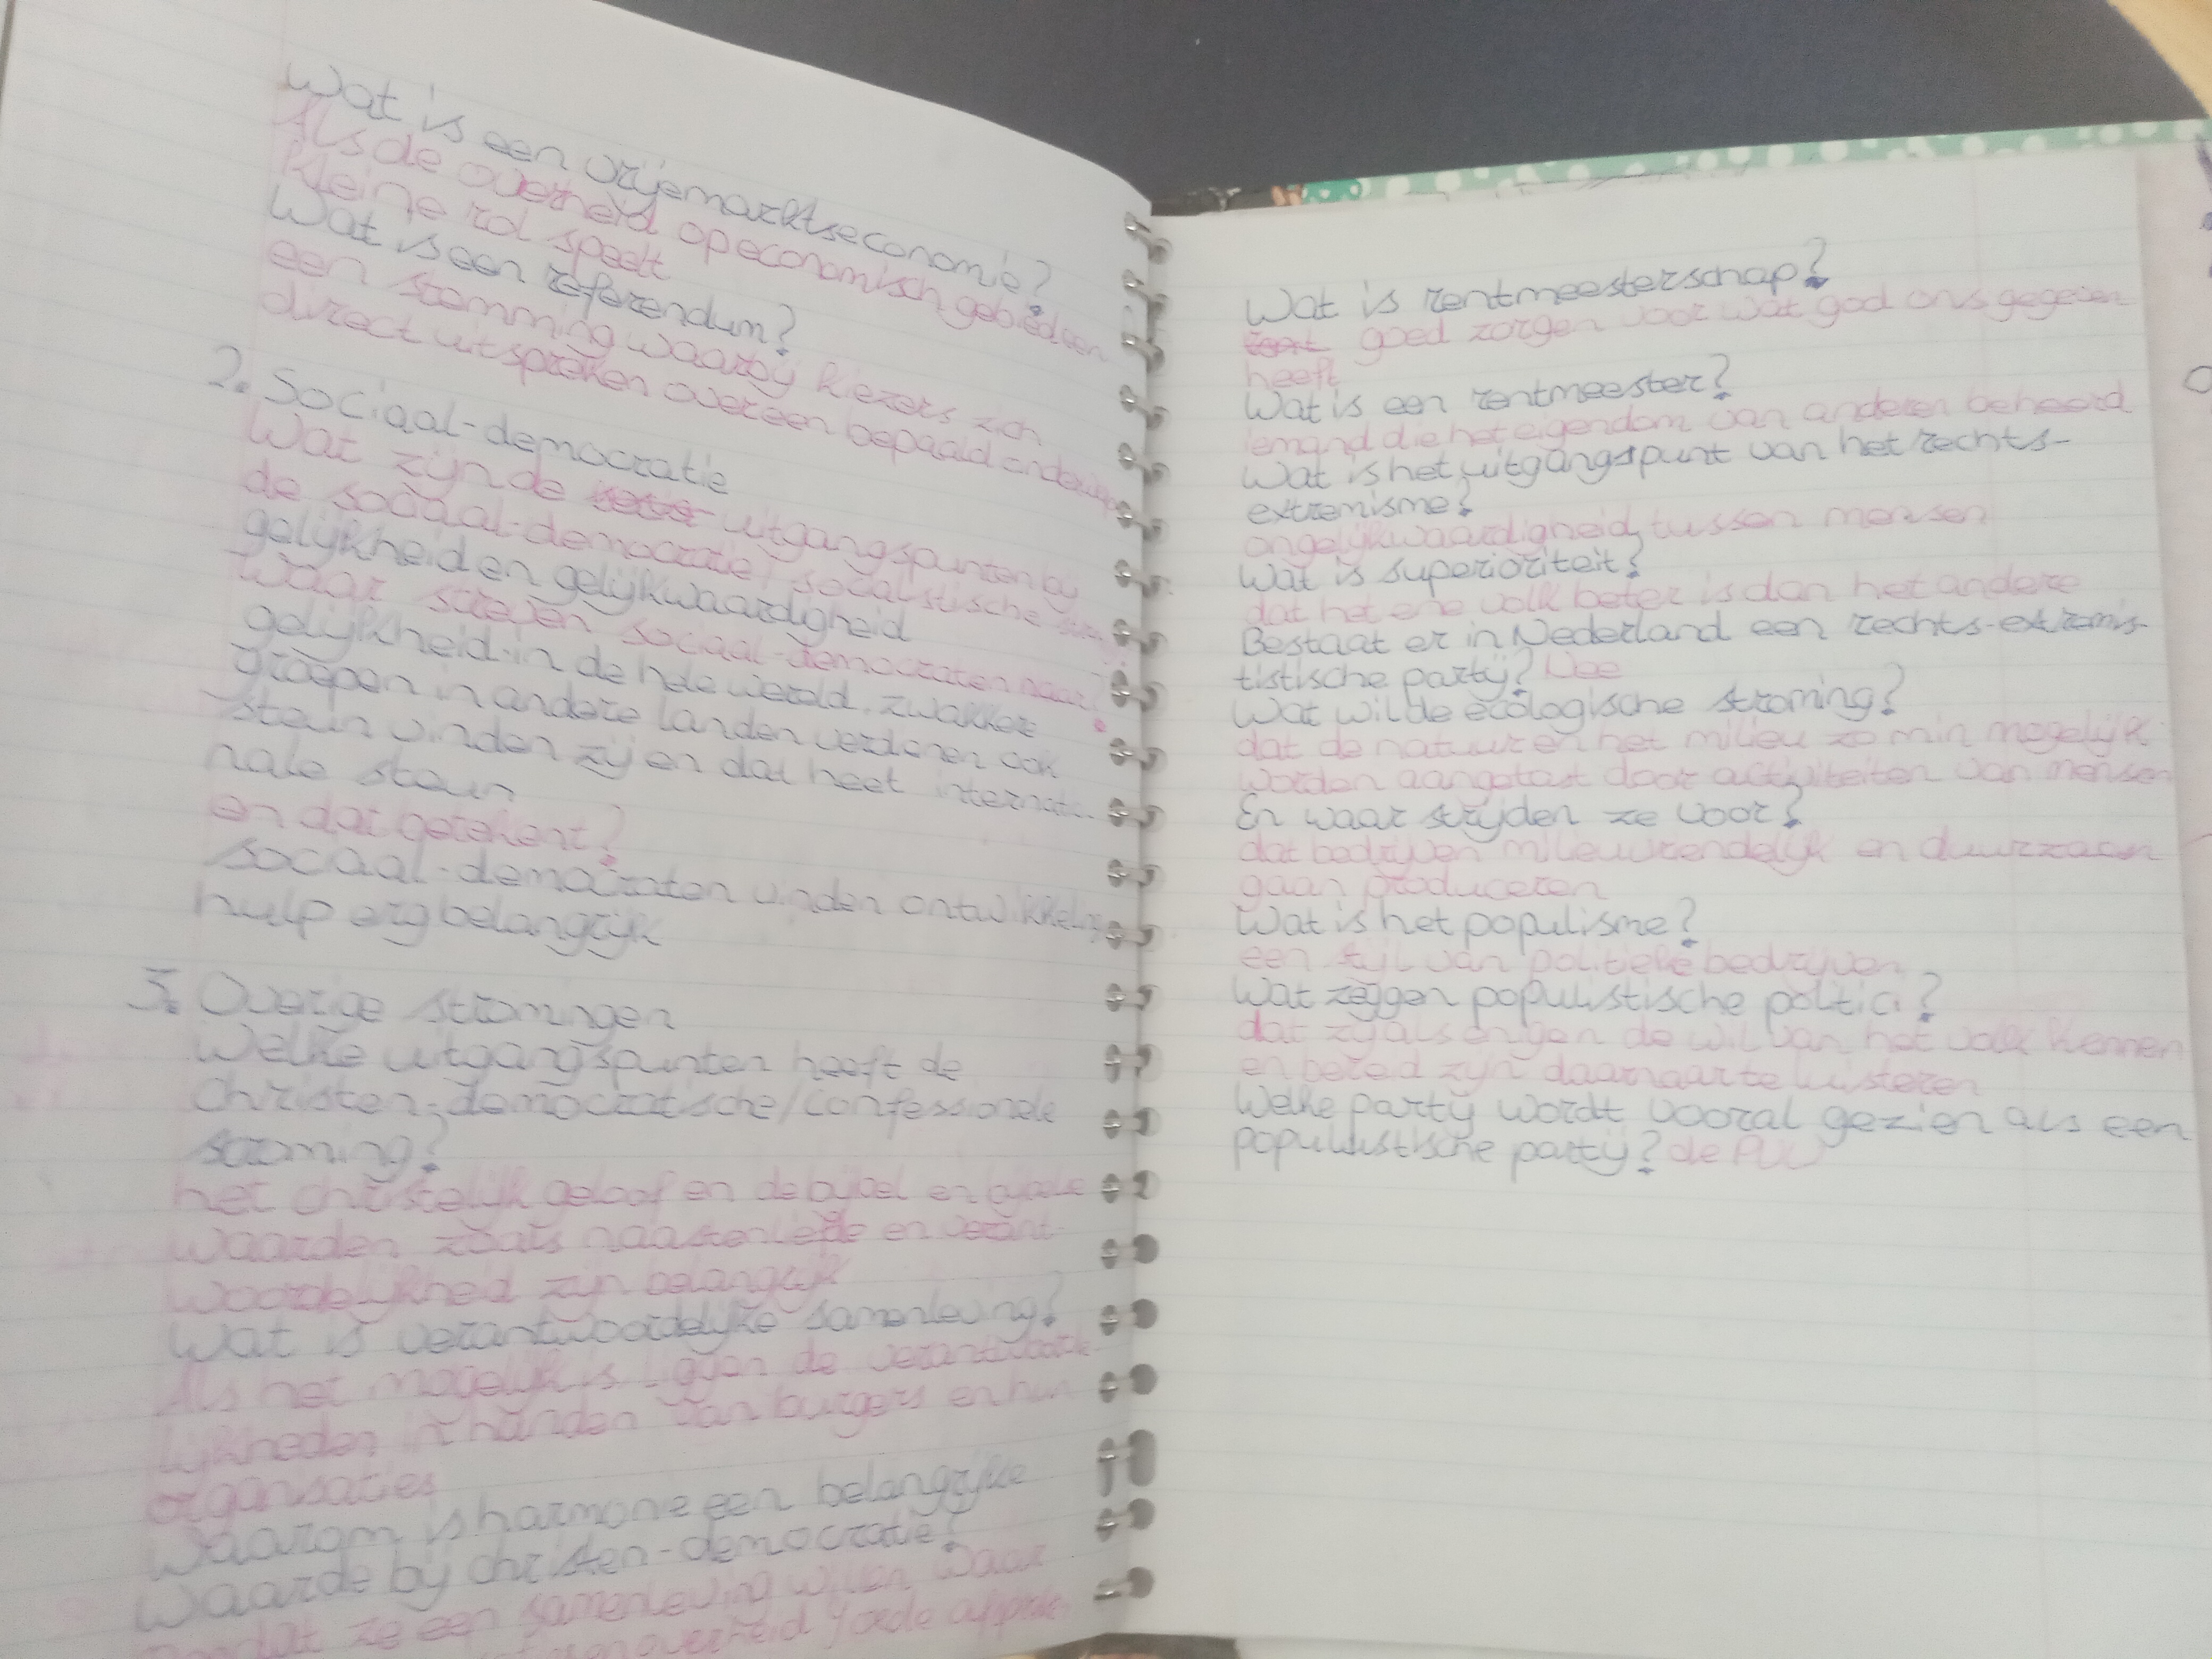 Wat is een vrijemarktseconomie?
Als de overheid op economisch gebied een
kleine rol speelt
Wat is een referendum?
een stemming waarbij kiezers zich
direct uitspreken over een bepaald onderwerp
2. Sociaal-democratie
Wat zijn de uitgangspunten bij
de sociaal-democratie/socialistische
gelijkheid en gelijkwaardigheid
Waar streven sociaal-democraten naar?
gelijkheid in de hele wereld. zwakkere
groepen in andere landen verdienen ook
steun vinden zij en dat heet internatio-
nale steun
en dat betekent?
sociaal-democraten vinden ontwikkelings
hulp erg belangrijk
3. Overige stromingen
Welke uitgangspunten heeft de
Christen-democratische/confessionele
stroming?
het christelijk geloof en de bijbel en
waarden zoals naastenliefde en verant-
woordelijkheid zijn belangrijk
Wat is verantwoordelijke samenleving?
Als het mogelijk is liggen de verantwoorde-
lijkheden in handen van burgers en hun
organisaties
Waarom is harmonie een belangrijke
waarde bij christen-democratie?
ze een samenleving willen waar
overheid goede
Wat is rentmeesterschap?
goed zorgen voor wat god ons gegeven
heeft
Wat is een rentmeester?
iemand die het eigendom van anderen beheerd
Wat is het uitgangspunt van het rechts-
extremisme?
ongelijkwaardigheid tussen mensen
Wat is superioriteit?
dat het ene volk beter is dan het andere
Bestaat er in Nederland een rechts-extremis-
tistische partij? Nee
Wat wil de ecologische stroming?
dat de natuur en het milieu zo min mogelijk
worden aangetast door activiteiten van mensen
En waar strijden ze voor?
dat bedrijven milieuvriendelijk en duurzaam
gaan produceren
Wat is het populisme?
een stijl van politieke bedrijven
Wat zeggen populistische politici?
dat zij als enigen de wil van het volk kennen
en bereid zijn daarnaar te luisteren
Welke partij wordt vooral gezien als een
populistische partij? de PVV